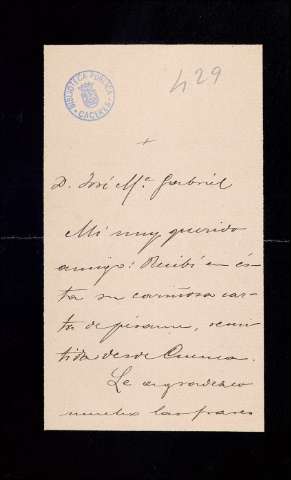 BIBLIOTECA PUBLICA
CACERES
429
+
D. José Mª. Gabriel
Mi muy querido
amigo: Recibí en és-
ta su cariñosa car-
ta de pésame, remi-
tida desde Cuenca.
Le agradezco
mucho las frases